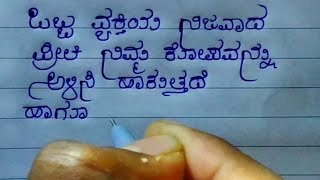 ಒಬ್ಬ ವ್ಯಕ್ತಿಯ ನಿಜವಾದ
ಪ್ರೀತಿ ನಿಮ್ಮ ಕೋಪವನ್ನು
ಅಳಿಸಿ ಹಾಕುತ್ತದೆ
ಹಾಗೂ